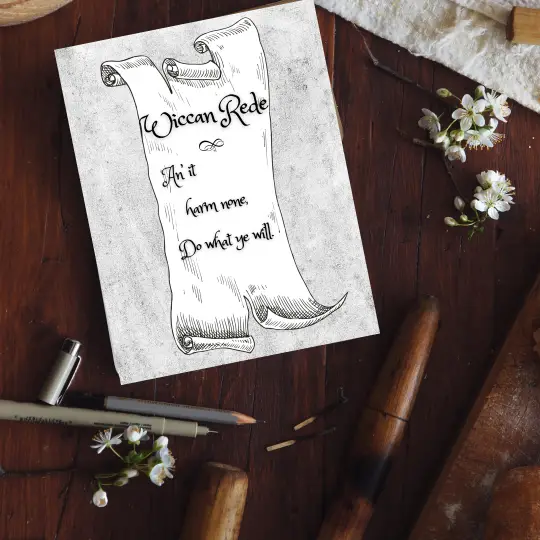 Wiccan Rede
An' it
harm none,
Do what ye will.